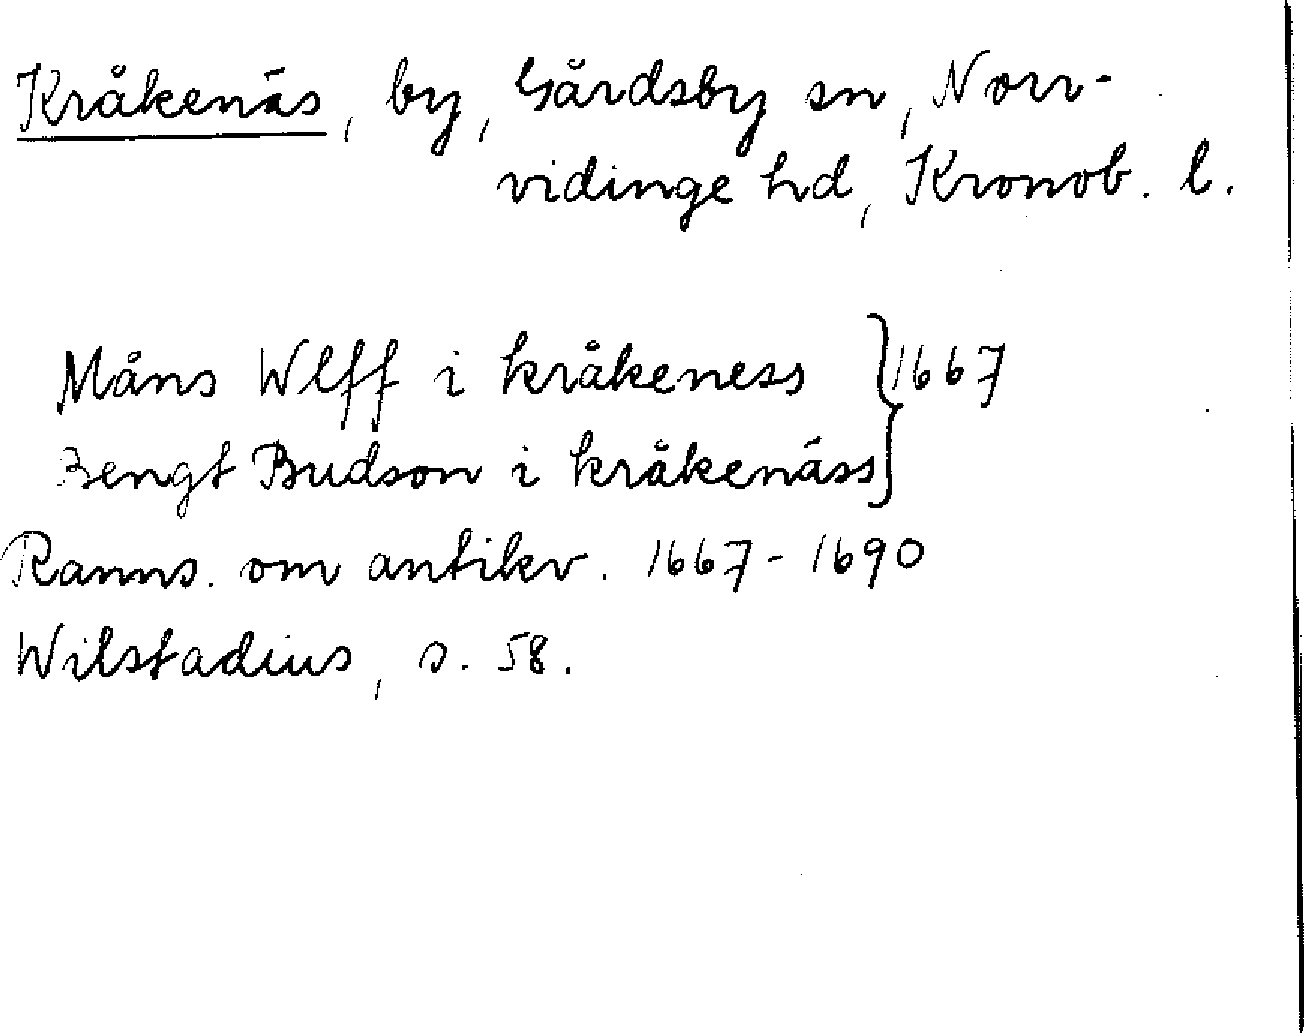 Kråkenäs, by, Gårdsby sn, Norr-
vidinge hd, Kronob. l.
Måns Wlff i kråkeness } 1667
Bengt Budson i kråkenäss
Ranns. om antikv. 1667-1690
Wilstadius, s. 58.